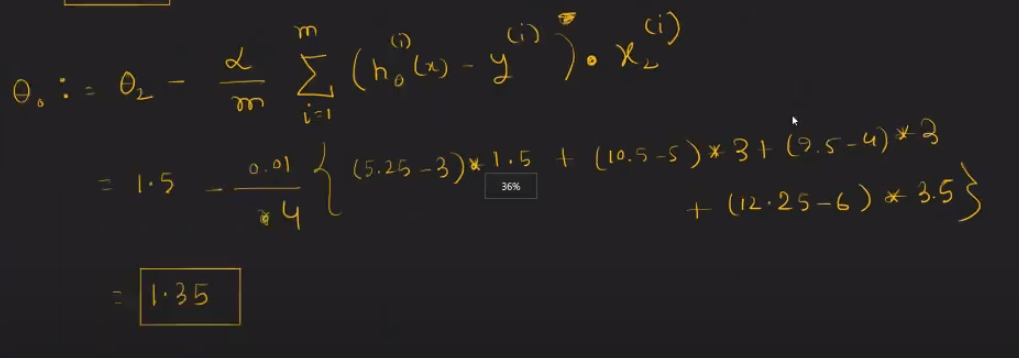 θ₀ := θ₂ - α/m Σ_{i=1}^{m} (h₀^{(i)}(x) - y^{(i)}) • x₂^{(i)}
= 1.5 - 0.01/*4 { (5.25-3)*1.5 + (10.5-5)*3 + (9.5-4)*3
36%
+ (12.25-6) * 3.5 }
= 1.35